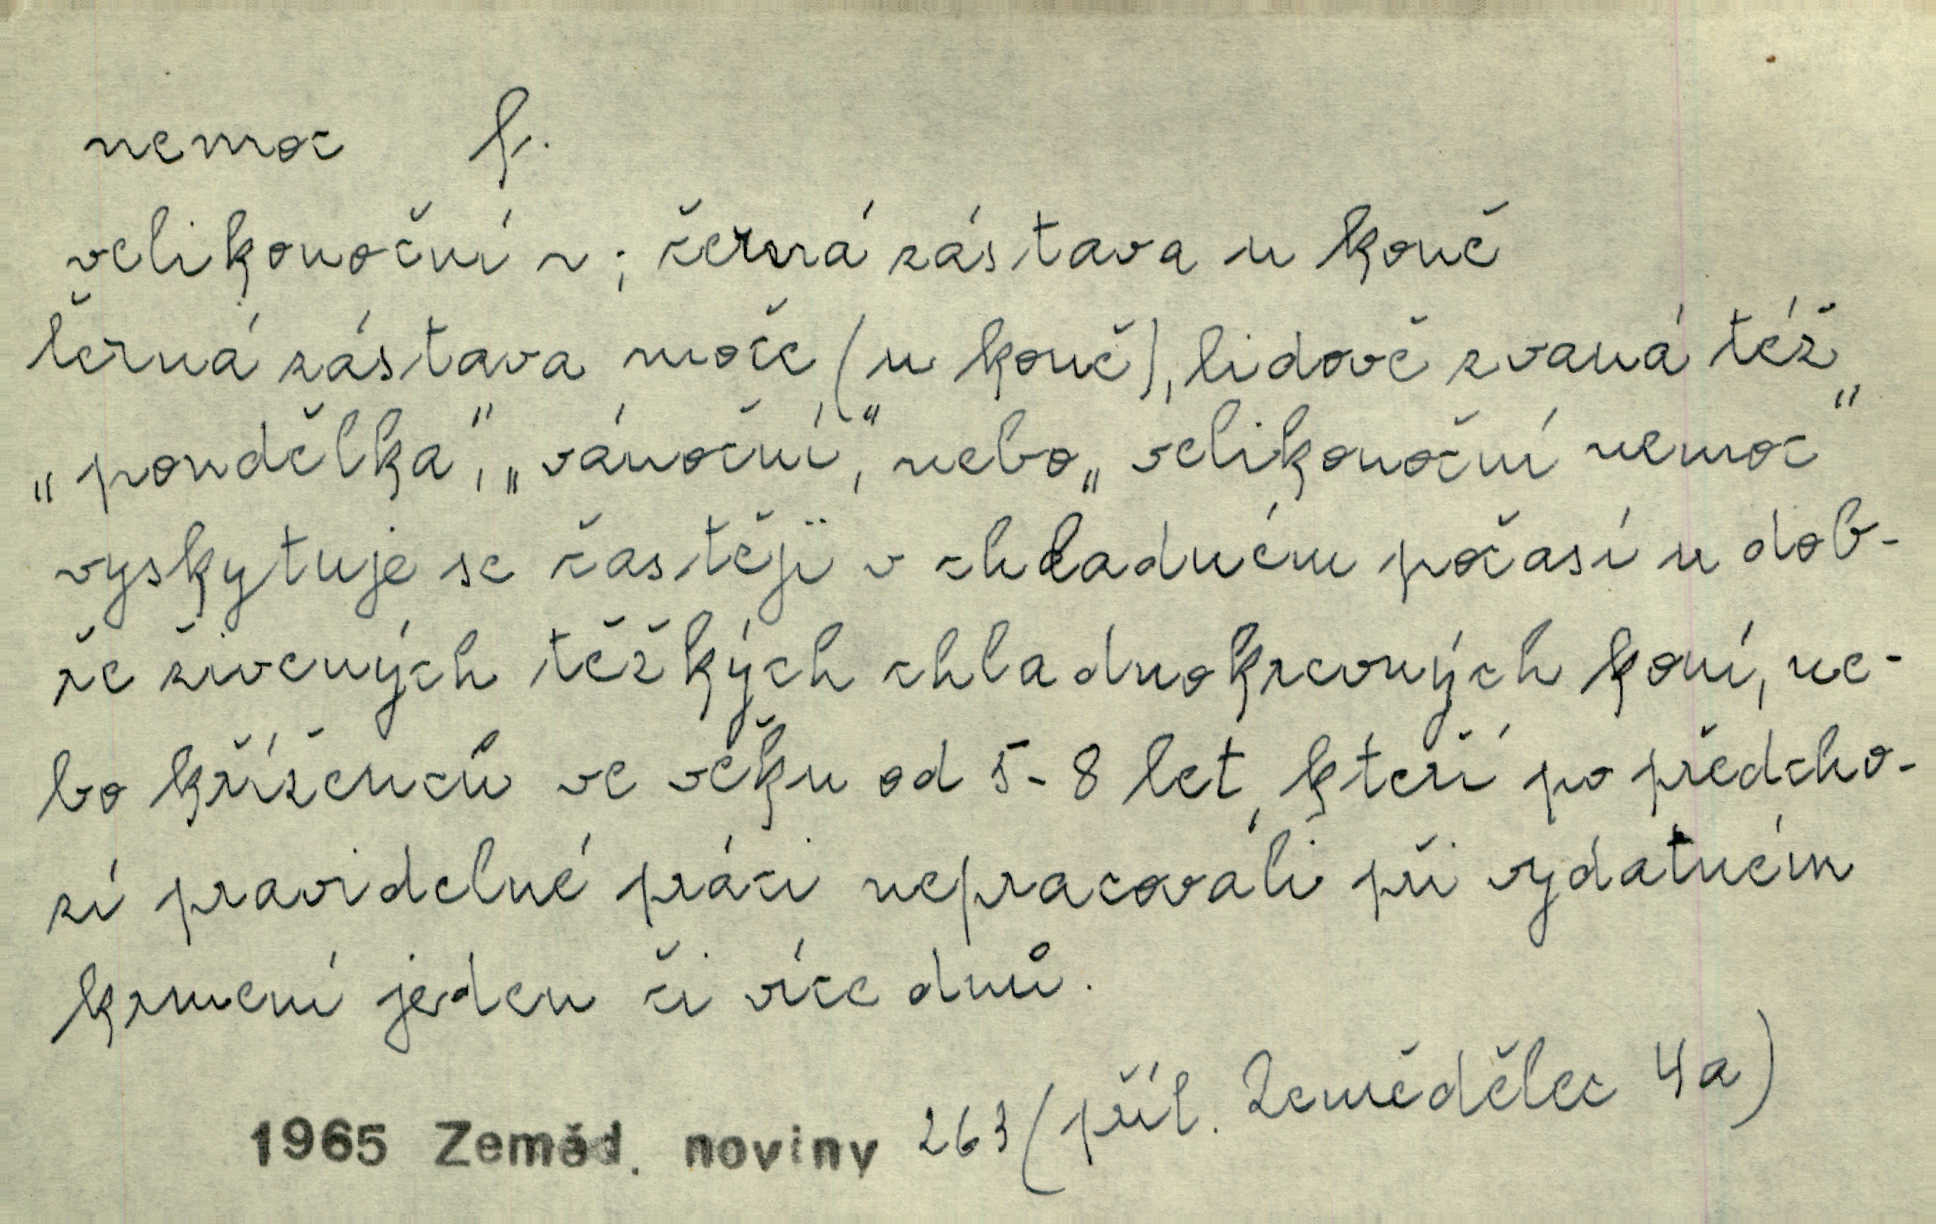 nemoc f.
velikonoční n; černá zástava u koně
Černá zástava moče (u koně), lidově zvaná též
„pondělka“, „vánoční“, nebo „velikonoční nemoc“
vyskytuje se častěji v chladném počasí u dob-
ře živených těžkých chladnokrevných koní, ne-
bo kříženců ve věku od 5-8 let, kteří po předcho-
zí pravidelné práci nepracovali při vydatném
krmení jeden či více dnů.
1965 Zeměd. noviny 263 (příl. Zemědělec 4a)